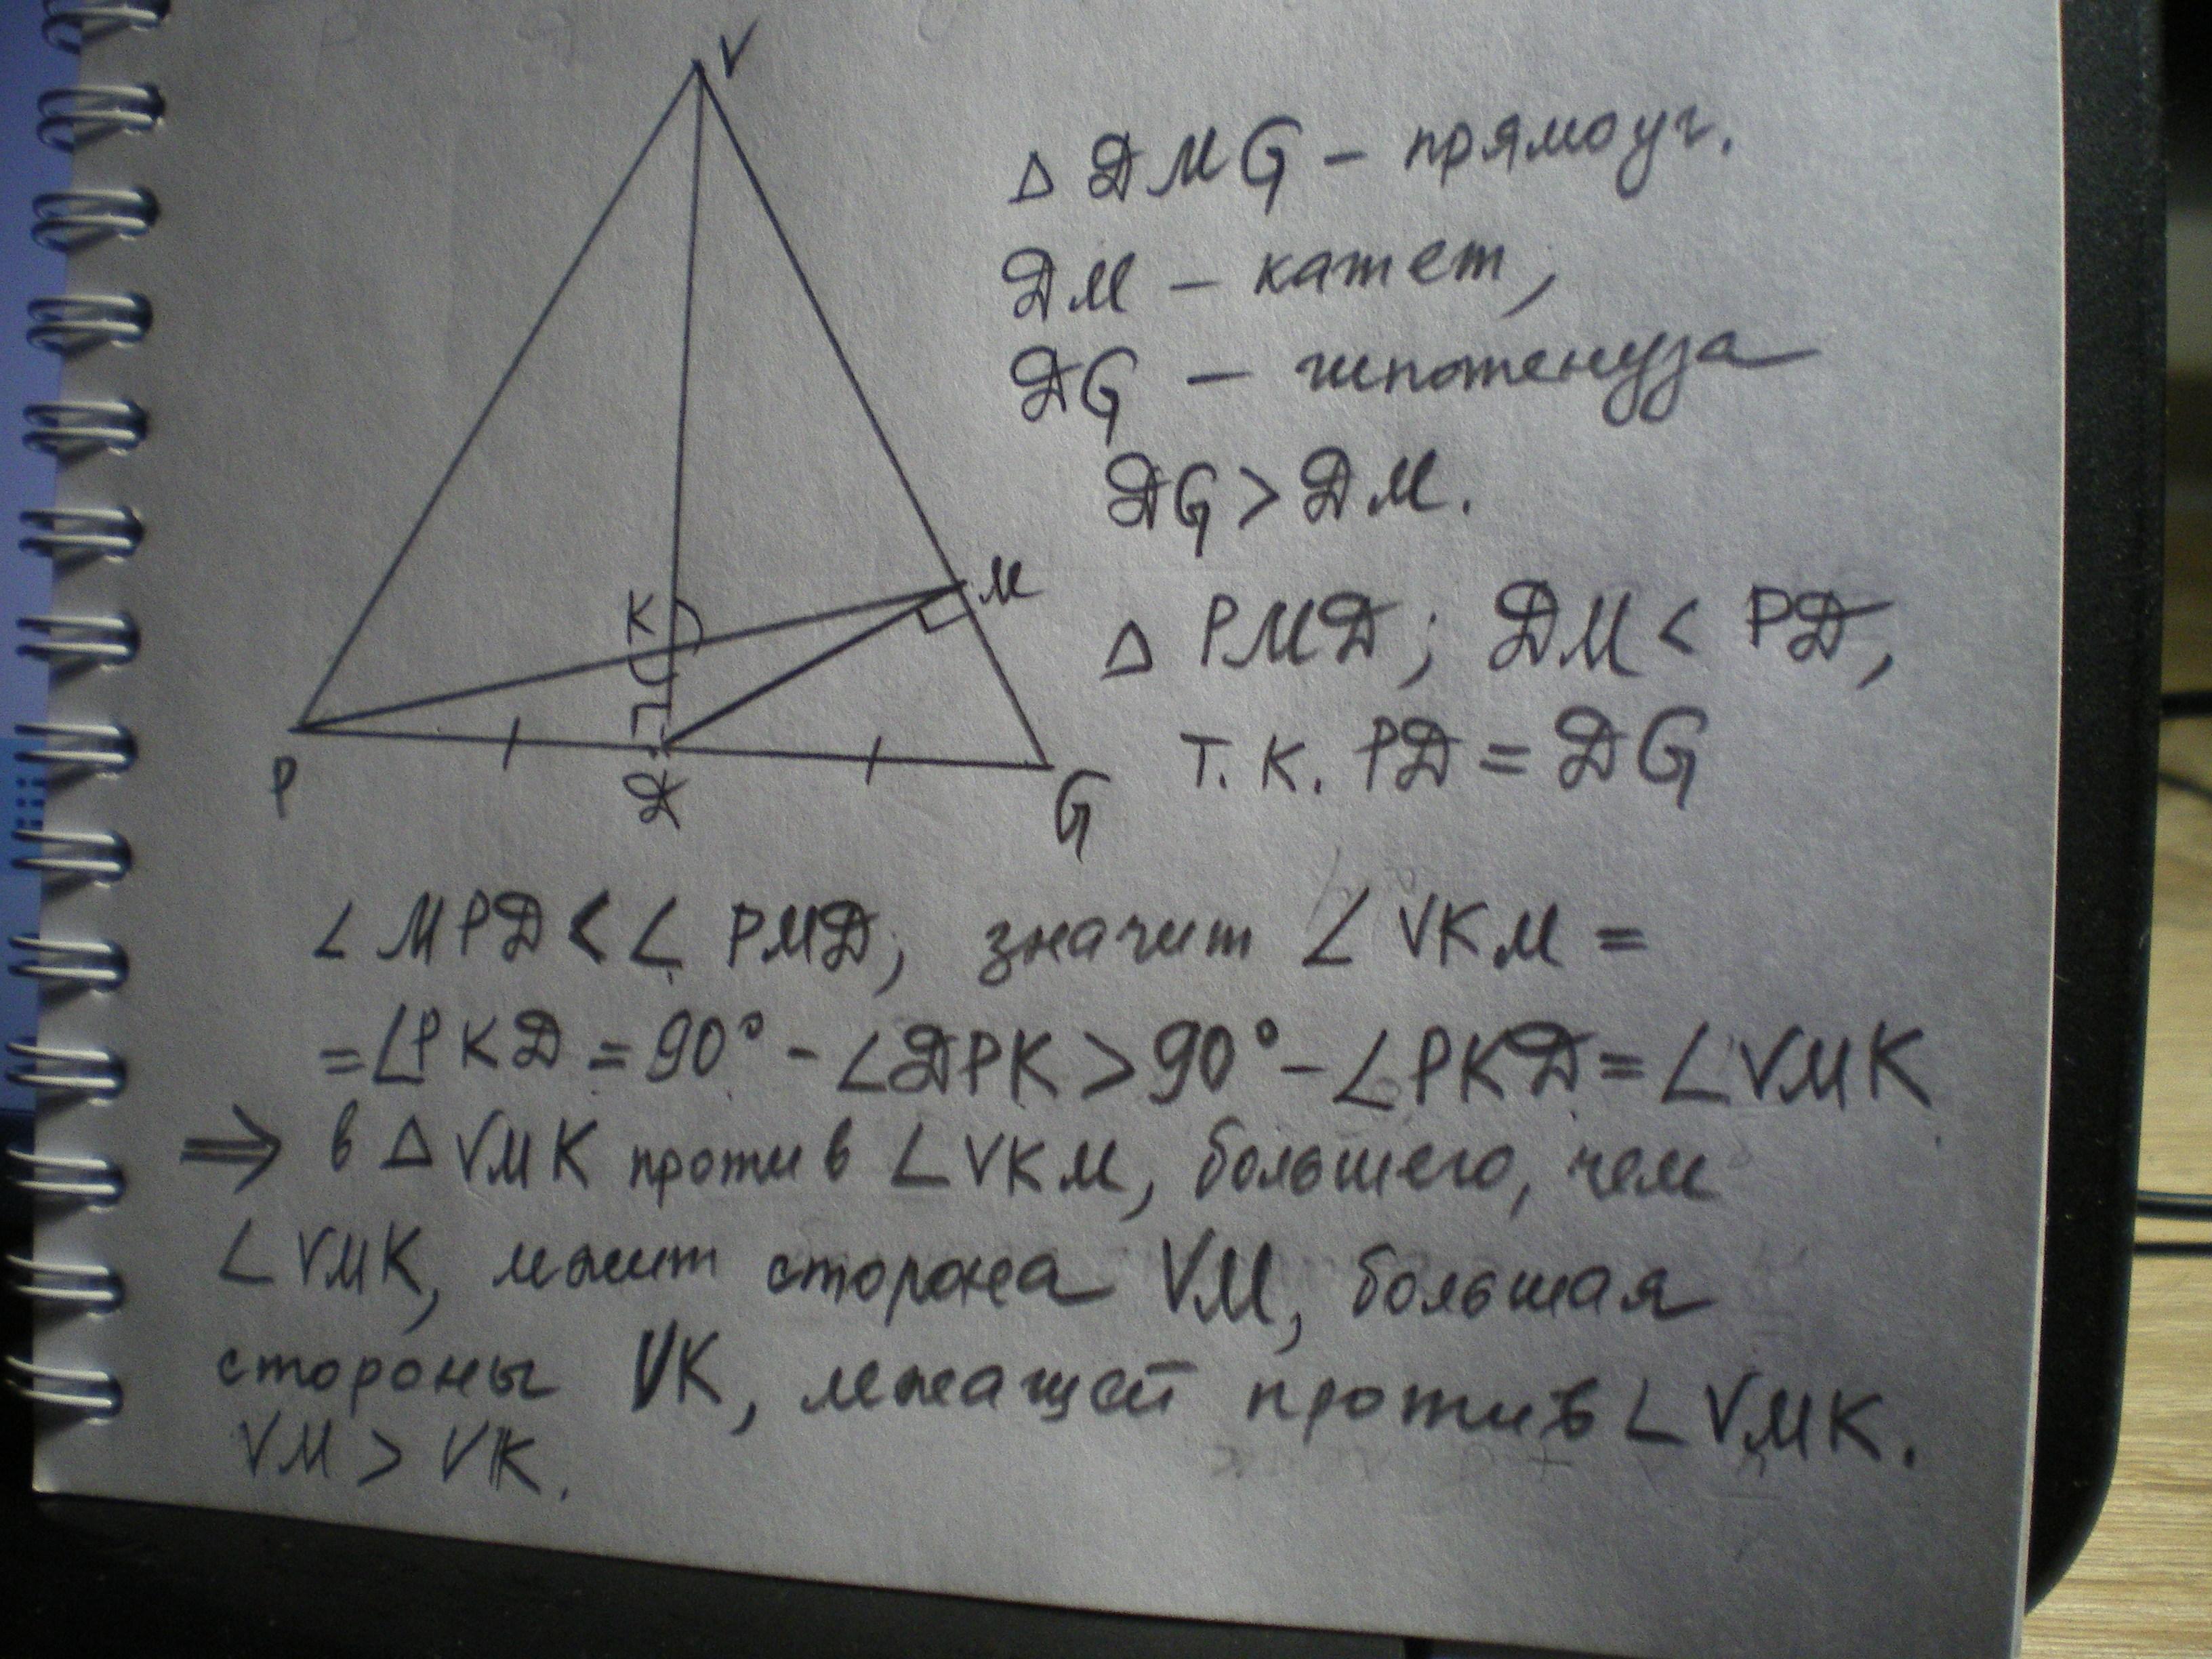 V
K
M
P
D
G
Δ DMG – прямоуг.
DM – катет,
DG – гипотенуза
DG > DM.
Δ PMD; DM < PD,
т.к. PD = DG
∠ MPD < ∠ PMD, значит ∠ VKM =
= ∠PKD = 90° - ∠DPK > 90° - ∠PKD = ∠VMK
⇒ в Δ VMK против ∠VKM, большего, чем
∠VMK, лежит сторона VM, большая
стороны VK, лежащей против ∠VMK.
VM > VK.